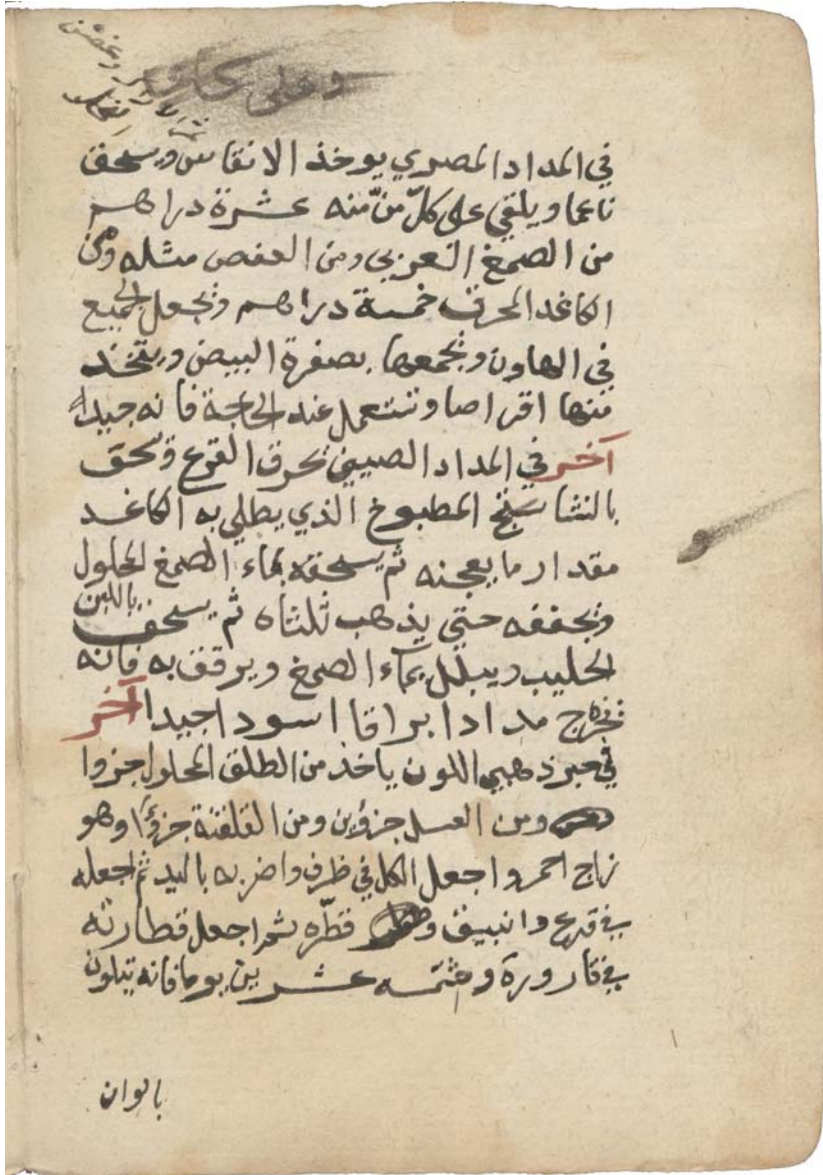 وعلى كا
في المداد المصري يوخذ الانقاس ويسحق
ناعما ويلقي على كلّ منّ منه عشرة دراهم
من الصمغ العربي ومن العفص مثله ومن
الكاغد المحرق خمسة دراهم ونجعل الجميع
في الهاون ونجمعها بصفرة البيض ويتخذ
منها اقراصا وتستعمل عند الحاجة فانه جيدا
آخر في المداد الصيني نحرق القرع ونسحق
بالنشا سنج المطبوخ الذي يطلي به الكاغد
مقدار ما يعجنه ثم يسحقه بماء الصمغ المحلول
ونجففه حتي يذهب ثلثاه ثم يسحق باللبن
الحليب ويبلل بمآء الصمغ ويرقق به فانه
نخرج مدادا براقا اسود اجيدا آخر
في حبر ذهبي اللون ياخذ من الطلق المحلول جزوا
ومن العسل جزؤين ومن القلقنة جزؤا وهو
زاج احمر واجعل الكل في ظرف واضربه باليد ثم اجعله
في قرع وانبيق و قطّره ثم اجعل قطارته
في قارورة وشمّسه عشرين يوما فانه يتلون
بالوان